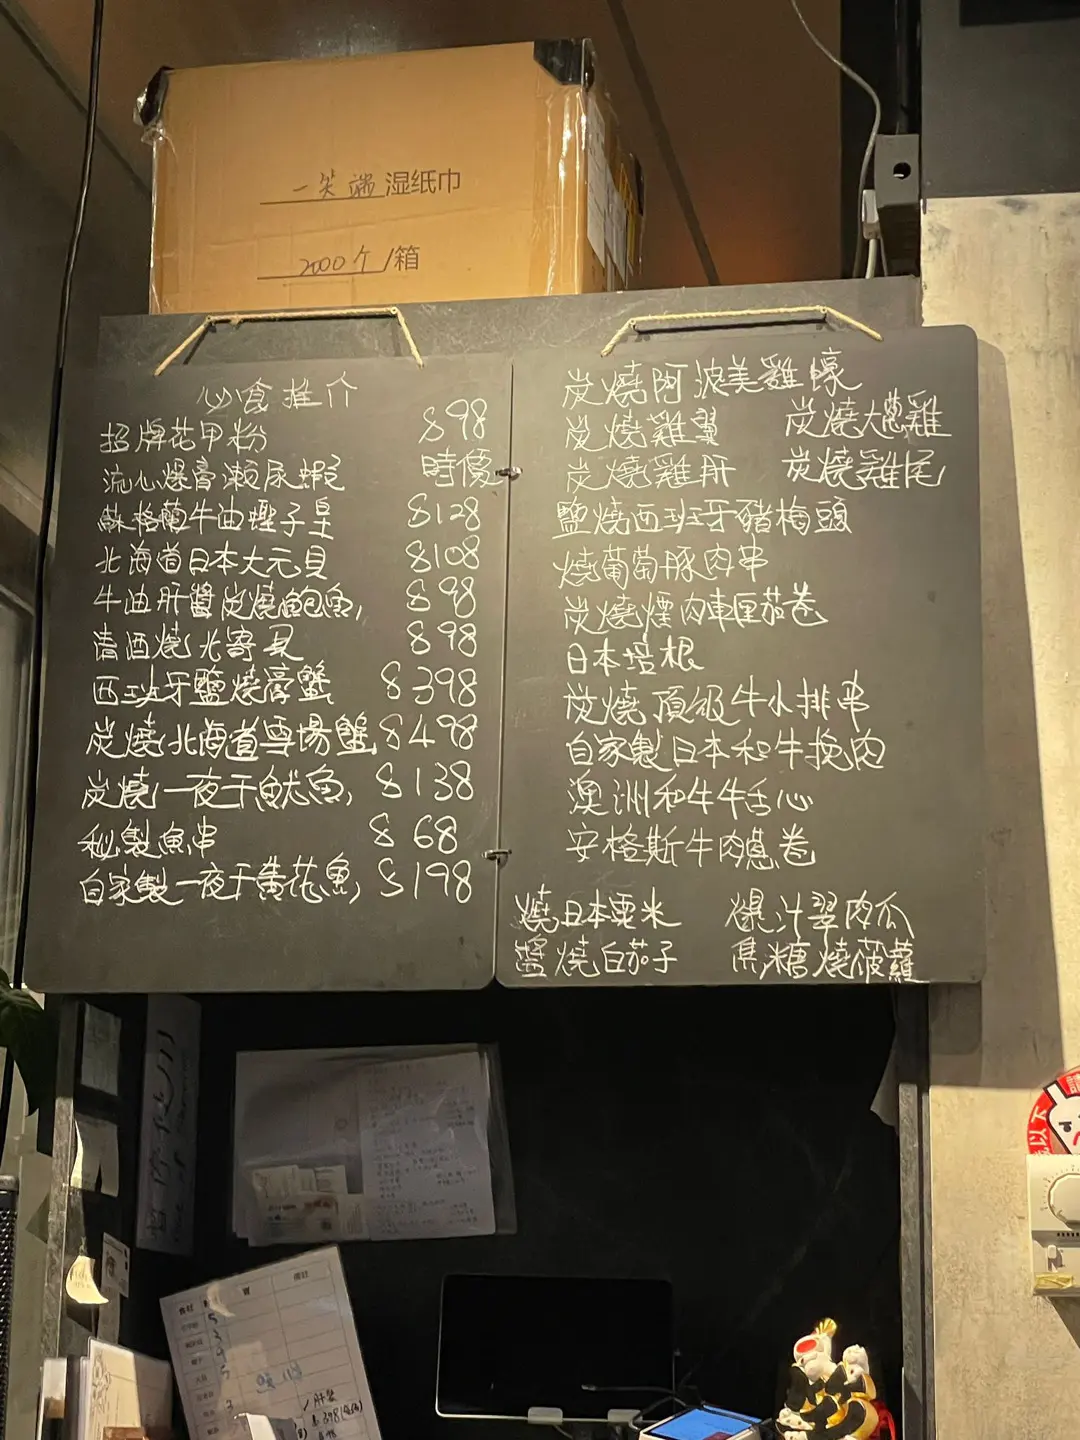 一笑端湿纸巾
2000个/箱
必食推介
招牌花甲粉 $98
流心爆膏瀨尿蝦 時價
蘇格蘭牛油蟶子皇 $128
北海道日本大元貝 $108
牛油肝醬炭燒鮑魚 $98
清酒燒北寄貝 $98
西班牙鹽燒膏蟹 $398
炭燒北海道雪場蟹 $498
炭燒一夜干魷魚 $138
秘製魚串 $68
自家製一夜干黃花魚 $198
炭燒阿波美雞蠔
炭燒雞翼 炭燒大蔥雞
炭燒雞肝 炭燒雞尾
鹽燒西班牙豬梅頭
燒葡萄豚肉串
炭燒煙肉車厘茄卷
日本培根
炭燒頂級牛小排串
自家製日本和牛挽肉
澳洲和牛牛舌心
安格斯牛肉蔥卷
燒日本粟米 爆汁翠肉瓜
醬燒白茄子 焦糖燒菠蘿